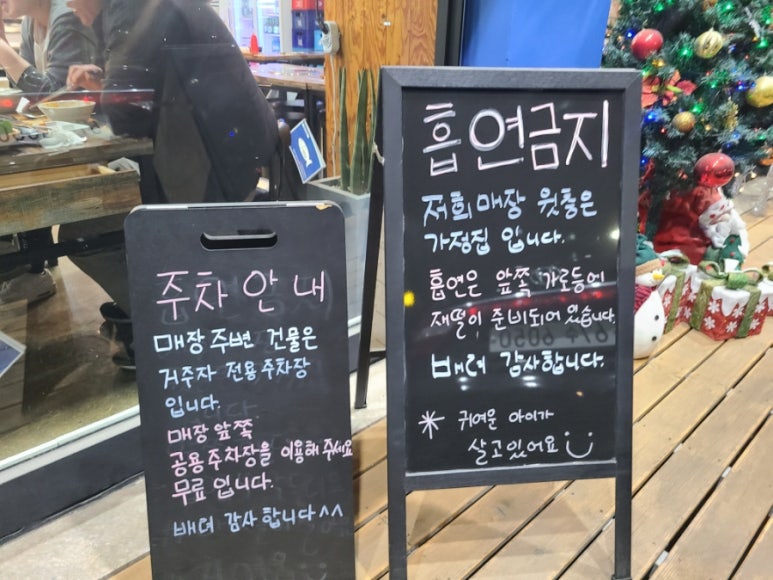 주차 안내
매장 주변 건물은
거주자 전용주차장
입니다.
매장 앞쪽
공용주차장을 이용해 주세요
무료 입니다.
배려 감사 합니다^^
흡연금지
저희 매장 윗층은
가정집 입니다.
흡연은 앞쪽 가로등에
재떨이 준비되어 있습니다.
배려 감사합니다.
* 귀여운 아이가
살고있어요